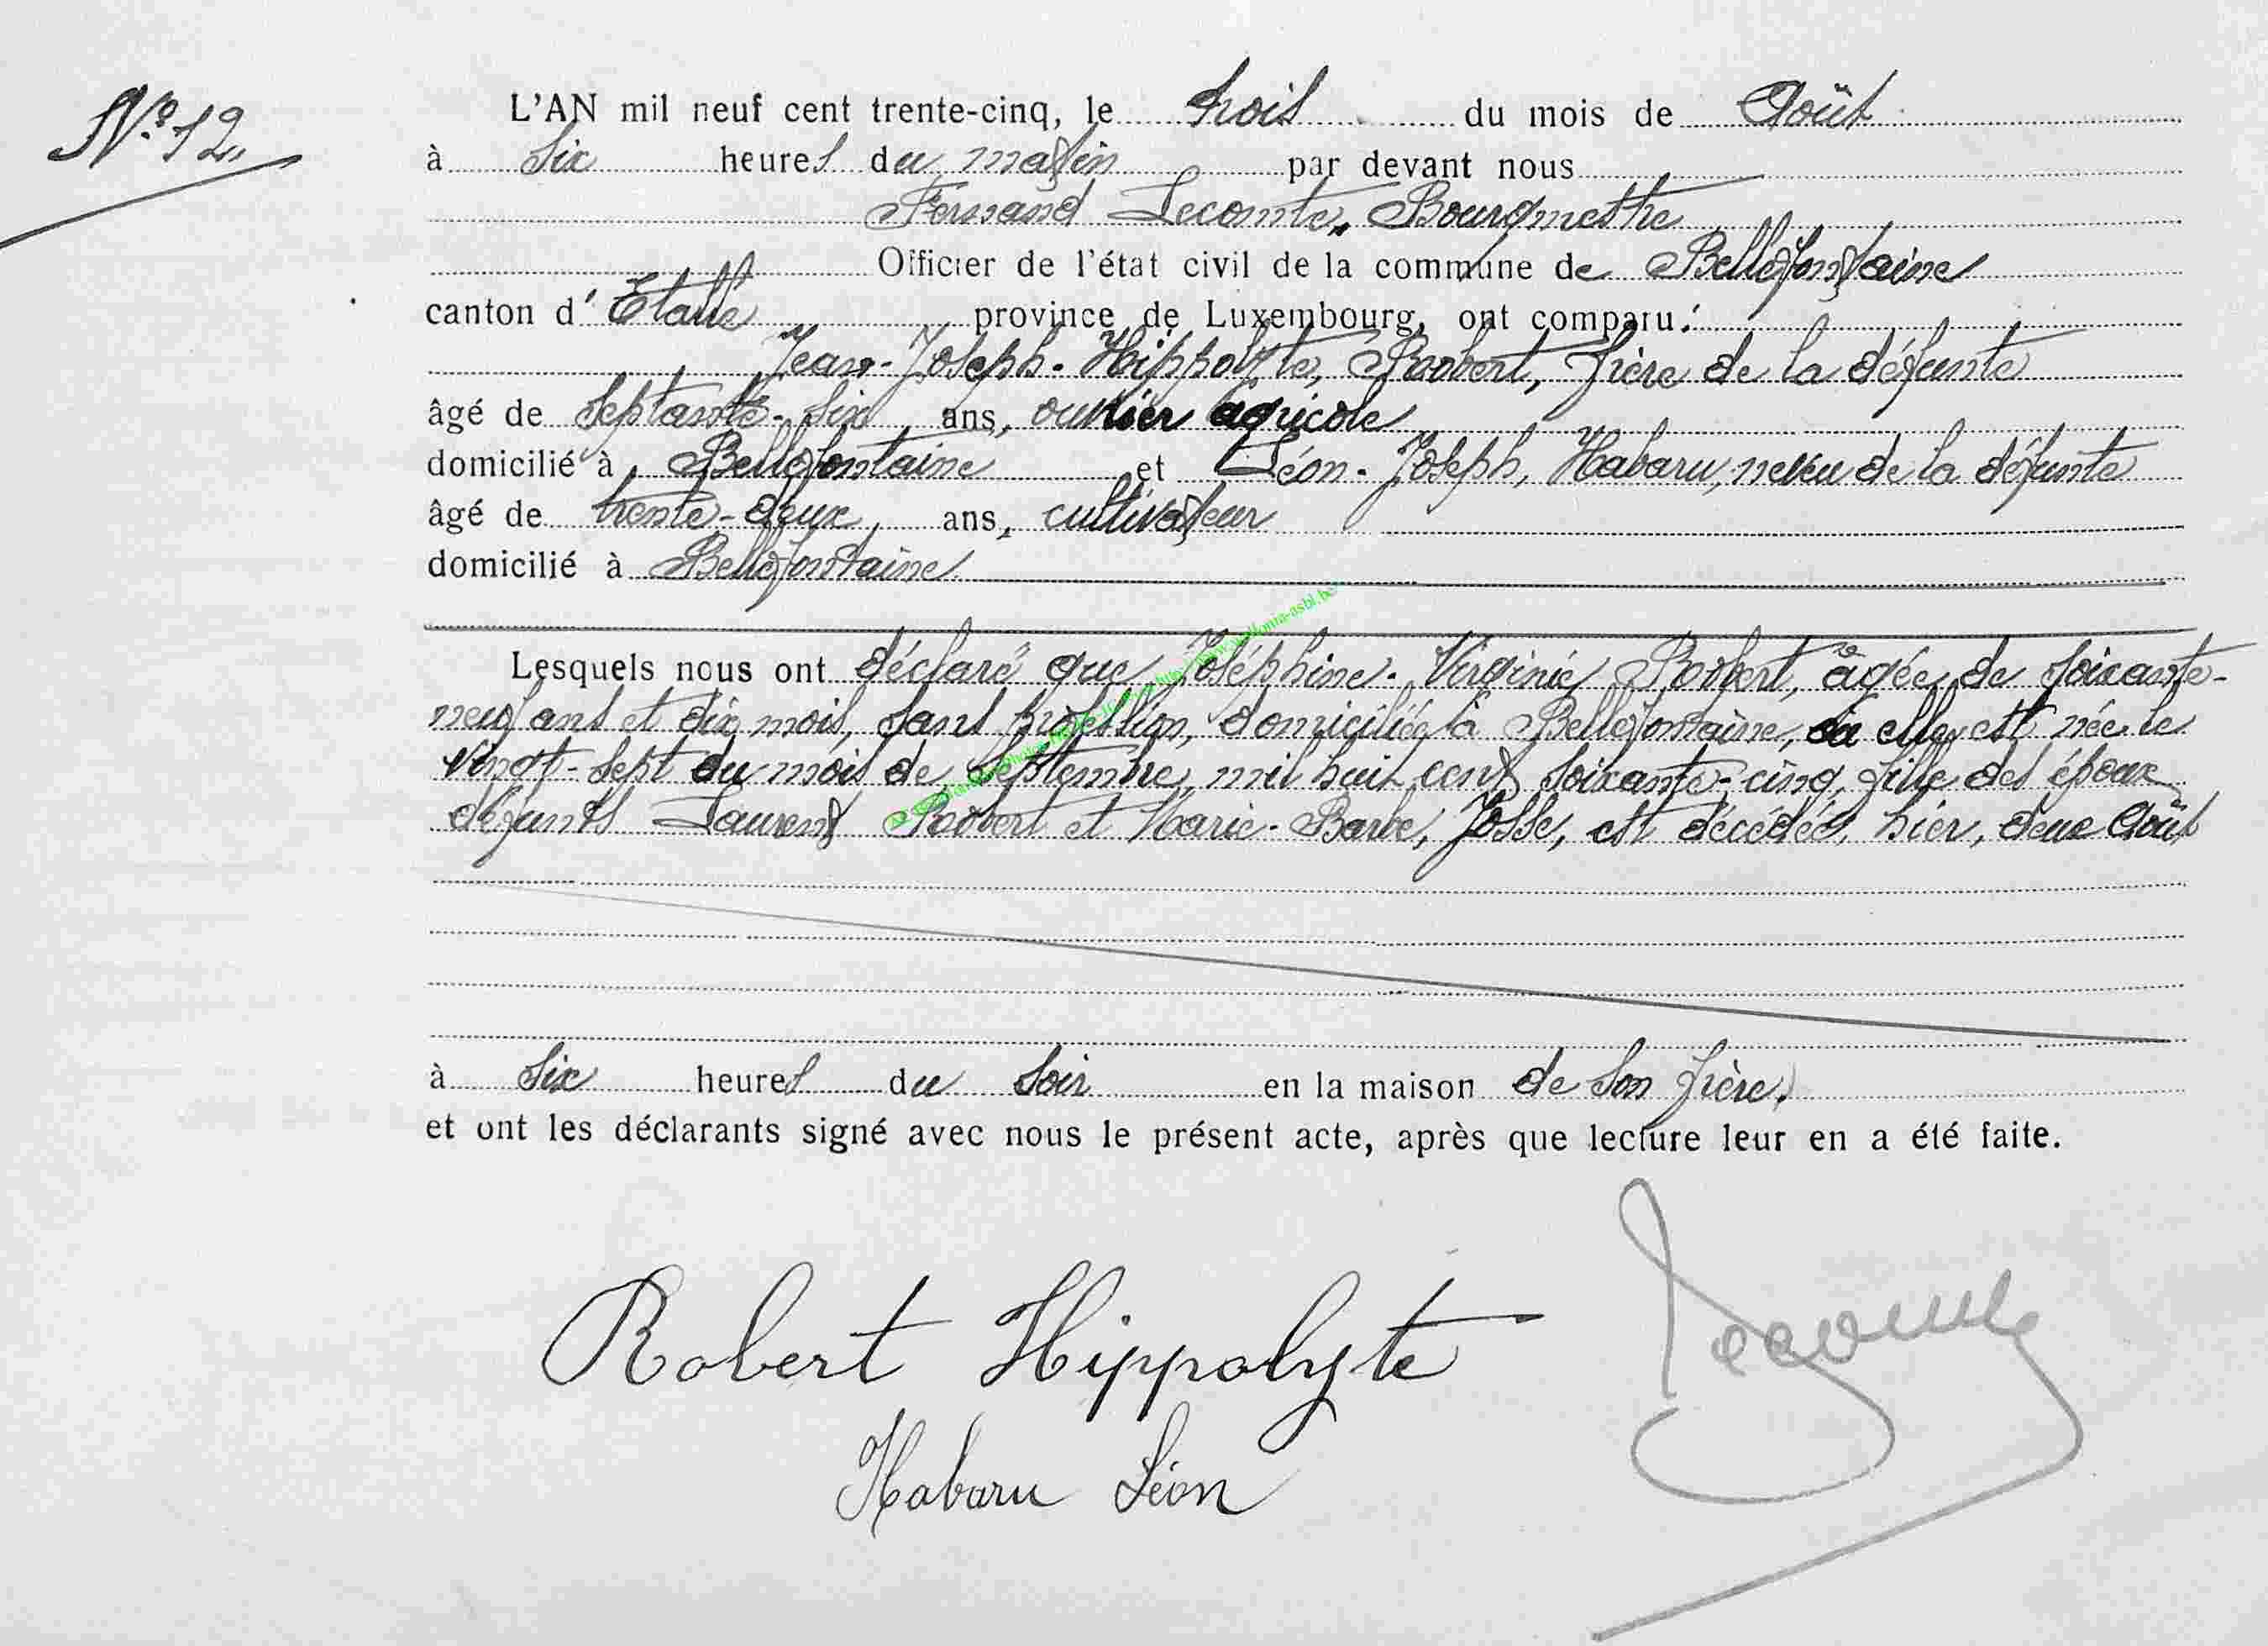 N° 12.
L'AN mil neuf cent trente-cinq, le trois du mois de Août
à six heures du matin par devant nous
Fernand Lecomte, Bourgmestre
Officier de l'état civil de la commune de Bellefontaine
canton d'Etalle province de Luxembourg, ont comparu:
Jean-Joseph-Hippolyte, Robert, frère de la défunte
âgé de septante-six ans, ouvrier agricole
domicilié à Bellefontaine et Léon-Joseph, Habaru, neveu de la défunte
âgé de trente-deux, ans, cultivateur
domicilié à Bellefontaine
Lesquels nous ont déclaré que Joséphine-Virginie Robert, âgée de soixante-
neuf ans et dix mois, sans profession, domiciliée à Bellefontaine, où elle est née le
vingt-sept du mois de Septembre mil huit cent soixante-cinq, fille des époux
défunts Laurent Robert et Marie-Barbe, Josse, est décédée, hier, deux Août
à six heures du soir en la maison de son frère.
et ont les déclarants signé avec nous le présent acte, après que lecture leur en a été faite.
Robert Hippolyte
Lecomte
Habaru Léon